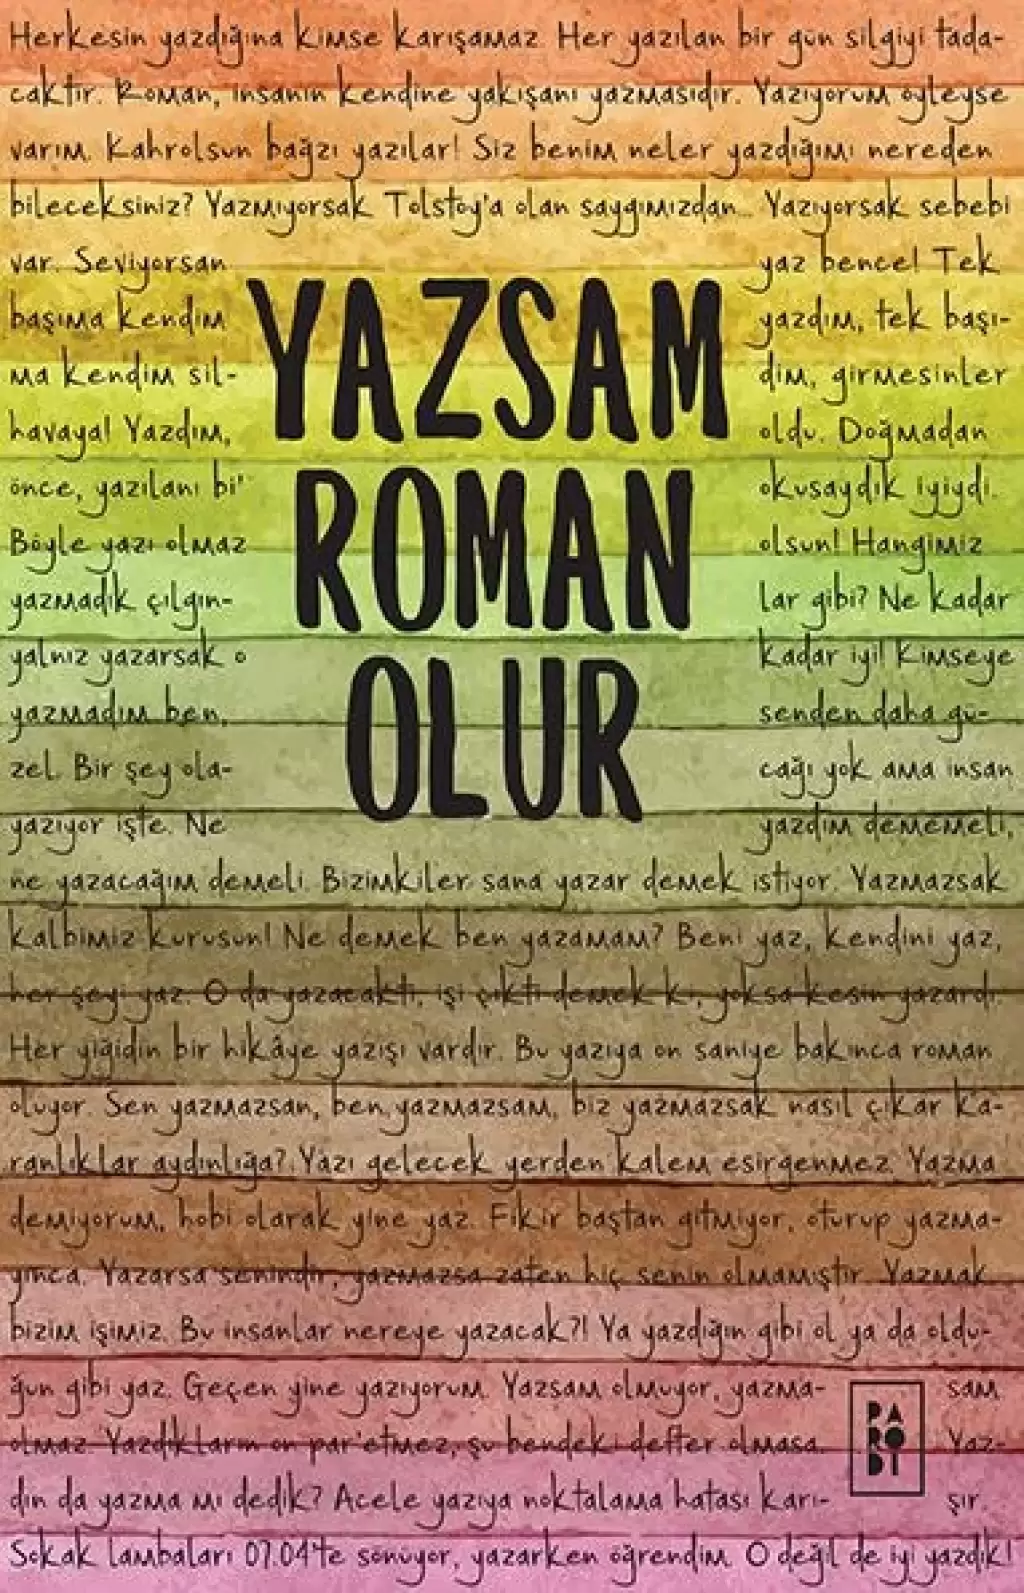 Herkesin yazdığına kimse karışamaz. Her yazılan bir gün silgiyi tada-
caktır. Roman, insanın kendine yakışanı yazmasıdır. Yazıyorum öyleyse
varım. Kahrolsun bağzı yazılar! Siz benim neler yazdığımı nereden
bileceksiniz? Yazmıyorsak Tolstoy'a olan saygımızdan... Yazıyorsak sebebi
var. Seviyorsan yaz bence! Tek
başıma kendim yazdım, tek başı-
ma kendim sil- dim, girmesinler
havaya! Yazdım, oldu. Doğmadan
önce, yazılanı bi' okusaydık iyiydi.
Böyle yazı olmaz olsun! Hangimiz
yazmadık çılgın- lar gibi? Ne kadar
yalnız yazarsak o kadar iyi! Kimseye
yazmadım ben, senden daha gü-
zel. Bir şey ola- cağı yok ama insan
yazıyor işte. Ne yazdım dememeli,
YAZSAM
ROMAN
OLUR
ne yazacağım demeli. Bizimkiler sana yazar demek istiyor. Yazmazsak
kalbimiz kurusun! Ne demek ben yazamam? Beni yaz, kendini yaz,
her şeyi yaz. O da yazacaktı, işi çıktı demek ki, yoksa kesin yazardı.
Her yiğidin bir hikâye yazışı vardır. Bu yazıya on saniye bakınca roman
oluyor. Sen yazmazsan, ben yazmazsam, biz yazmazsak nasıl çıkar ka-
ranlıklar aydınlığa? Yazı gelecek yerden kalem esirgenmez. Yazma
demiyorum, hobi olarak yine yaz. Fikir baştan gitmiyor, oturup yazma-
yınca. Yazarsa senindir, yazmazsa zaten hiç senin olmamıştır. Yazmak
bizim işimiz. Bu insanlar nereye yazacak?! Ya yazdığın gibi ol ya da oldu-
ğun gibi yaz. Geçen yine yazıyorum. Yazsam olmuyor, yazma- sam
olmaz. Yazdıkların on par'etmez, şu bendeki defter olmasa. Yaz-
dın da yazma mı dedik? Acele yazıya noktalama hatası karı- şır.
Sokak lambaları 07.04'te sönüyor, yazarken öğrendim. O değil de iyi yazdık!
PA
RO
DI